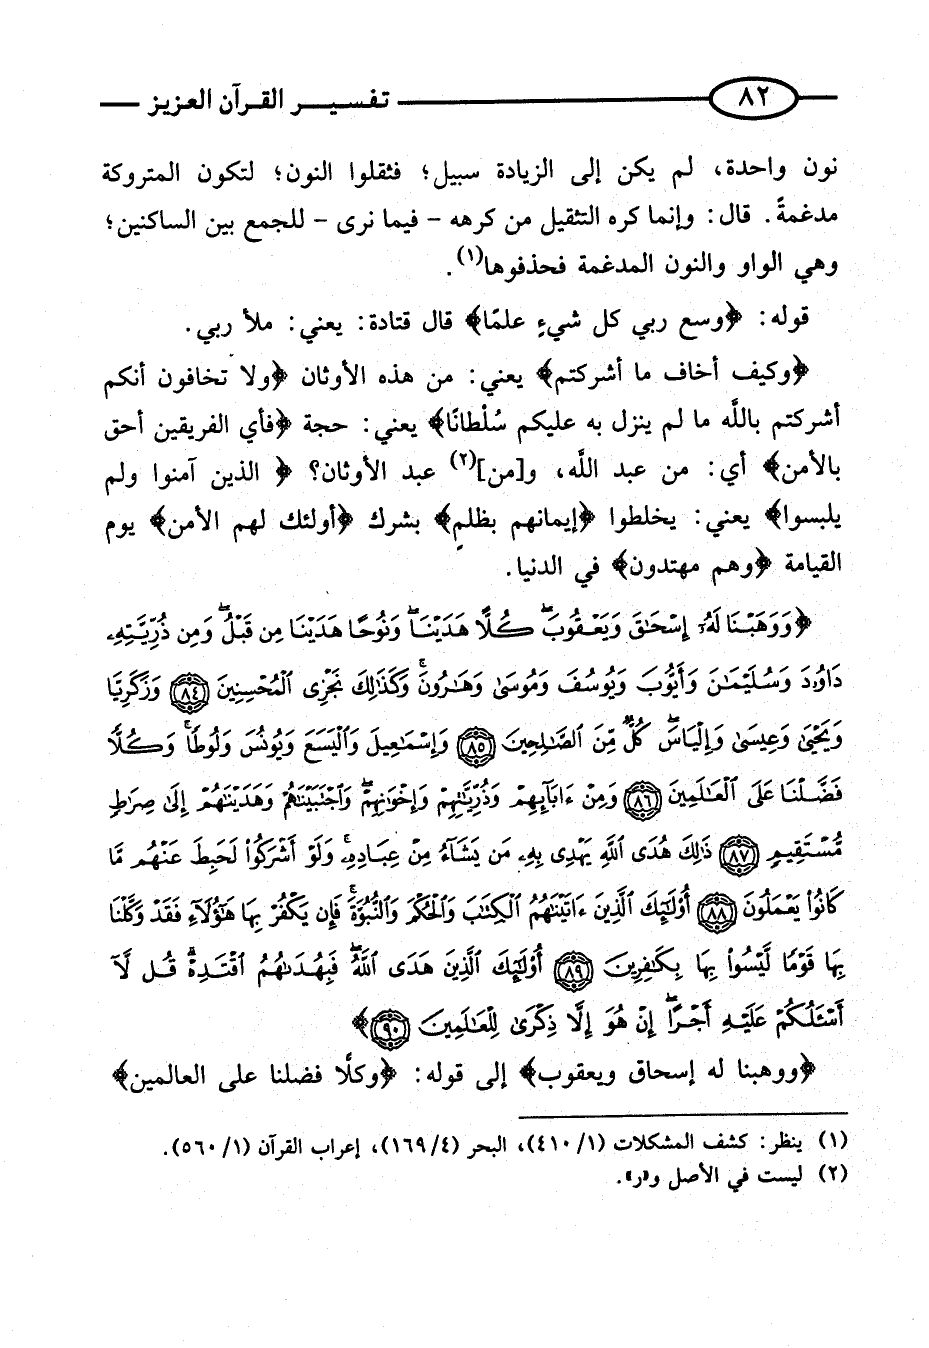 ٨٢ تفسير القرآن العزيز
نون واحدة، لم يكن إلى الزيادة سبيل؛ فثقلوا النون؛ لتكون المتروكة
مدغمةً. قال: وإنما كره التثقيل من كرهه - فيما نرى - للجمع بين الساكنين؛
وهي الواو والنون المدغمة فحذفوها(١).
قوله: ﴿وسع ربي كل شيءٍ علمًا﴾ قال قتادة: يعني: ملأ ربي.
﴿وكيف أخاف ما أشركتم﴾ يعني: من هذه الأوثان ﴿ولا تخافون أنكم
أشركتم باللَّه ما لم ينزل به عليكم سُلْطانًا﴾ يعني: حجة ﴿فأي الفريقين أحق
بالأمن﴾ أي: من عبد اللَّه، و[من](٢) عبد الأوثان؟ ﴿ الذين آمنوا ولم
يلبسوا﴾ يعني: يخلطوا ﴿إيمانهم بظلمٍ﴾ بشرك ﴿أولئك لهم الأمن﴾ يوم
القيامة ﴿وهم مهتدون﴾ في الدنيا.
﴿وَوَهَبْنَا لَهُۥٓ إِسْحَٰقَ وَيَعْقُوبَۚ كُلًّا هَدَيْنَاۚ وَنُوحًا هَدَيْنَا مِن قَبْلُۖ وَمِن ذُرِّيَّتِهِۦ
دَاوُۥدَ وَسُلَيْمَٰنَ وَأَيُّوبَ وَيُوسُفَ وَمُوسَىٰ وَهَٰرُونَۚ وَكَذَٰلِكَ نَجْزِى الْمُحْسِنِينَ ٨٤ وَزَكَرِيَّا
وَيَحْيَىٰ وَعِيسَىٰ وَإِلْيَاسَۖ كُلٌّ مِّنَ الصَّٰلِحِينَ ٨٥ وَإِسْمَٰعِيلَ وَالْيَسَعَ وَيُونُسَ وَلُوطًاۚ وَكُلًّا
فَضَّلْنَا عَلَى الْعَٰلَمِينَ ٨٦ وَمِنْ ءَابَآئِهِمْ وَذُرِّيَّٰتِهِمْ وَإِخْوَٰنِهِمْۖ وَاجْتَبَيْنَٰهُمْ وَهَدَيْنَٰهُمْ إِلَىٰ صِرَٰطٍ
مُّسْتَقِيمٍ ٨٧ ذَٰلِكَ هُدَى اللَّهِ يَهْدِى بِهِۦ مَن يَشَآءُ مِنْ عِبَادِهِۦۚ وَلَوْ أَشْرَكُوا۟ لَحَبِطَ عَنْهُم مَّا
كَانُوا۟ يَعْمَلُونَ ٨٨ أُو۟لَٰٓئِكَ الَّذِينَ ءَاتَيْنَٰهُمُ الْكِتَٰبَ وَالْحُكْمَ وَالنُّبُوَّةَۚ فَإِن يَكْفُرْ بِهَا هَٰٓؤُلَآءِ فَقَدْ وَكَّلْنَا
بِهَا قَوْمًا لَّيْسُوا۟ بِهَا بِكَٰفِرِينَ ٨٩ أُو۟لَٰٓئِكَ الَّذِينَ هَدَى اللَّهُۖ فَبِهُدَىٰهُمُ اقْتَدِهْۗ قُل لَّآ
أَسْـَٔلُكُمْ عَلَيْهِ أَجْرًاۖ إِنْ هُوَ إِلَّا ذِكْرَىٰ لِلْعَٰلَمِينَ ٩٠﴾
﴿ووهبنا له إسحاق ويعقوب﴾ إلى قوله: ﴿وكلًا فضلنا على العالمين﴾
(١) ينظر: كشف المشكلات (١/ ٤١٠)، البحر (٤/ ١٦٩)، إعراب القرآن (١/ ٥٦٠).
(٢) ليست في الأصل و«ر».